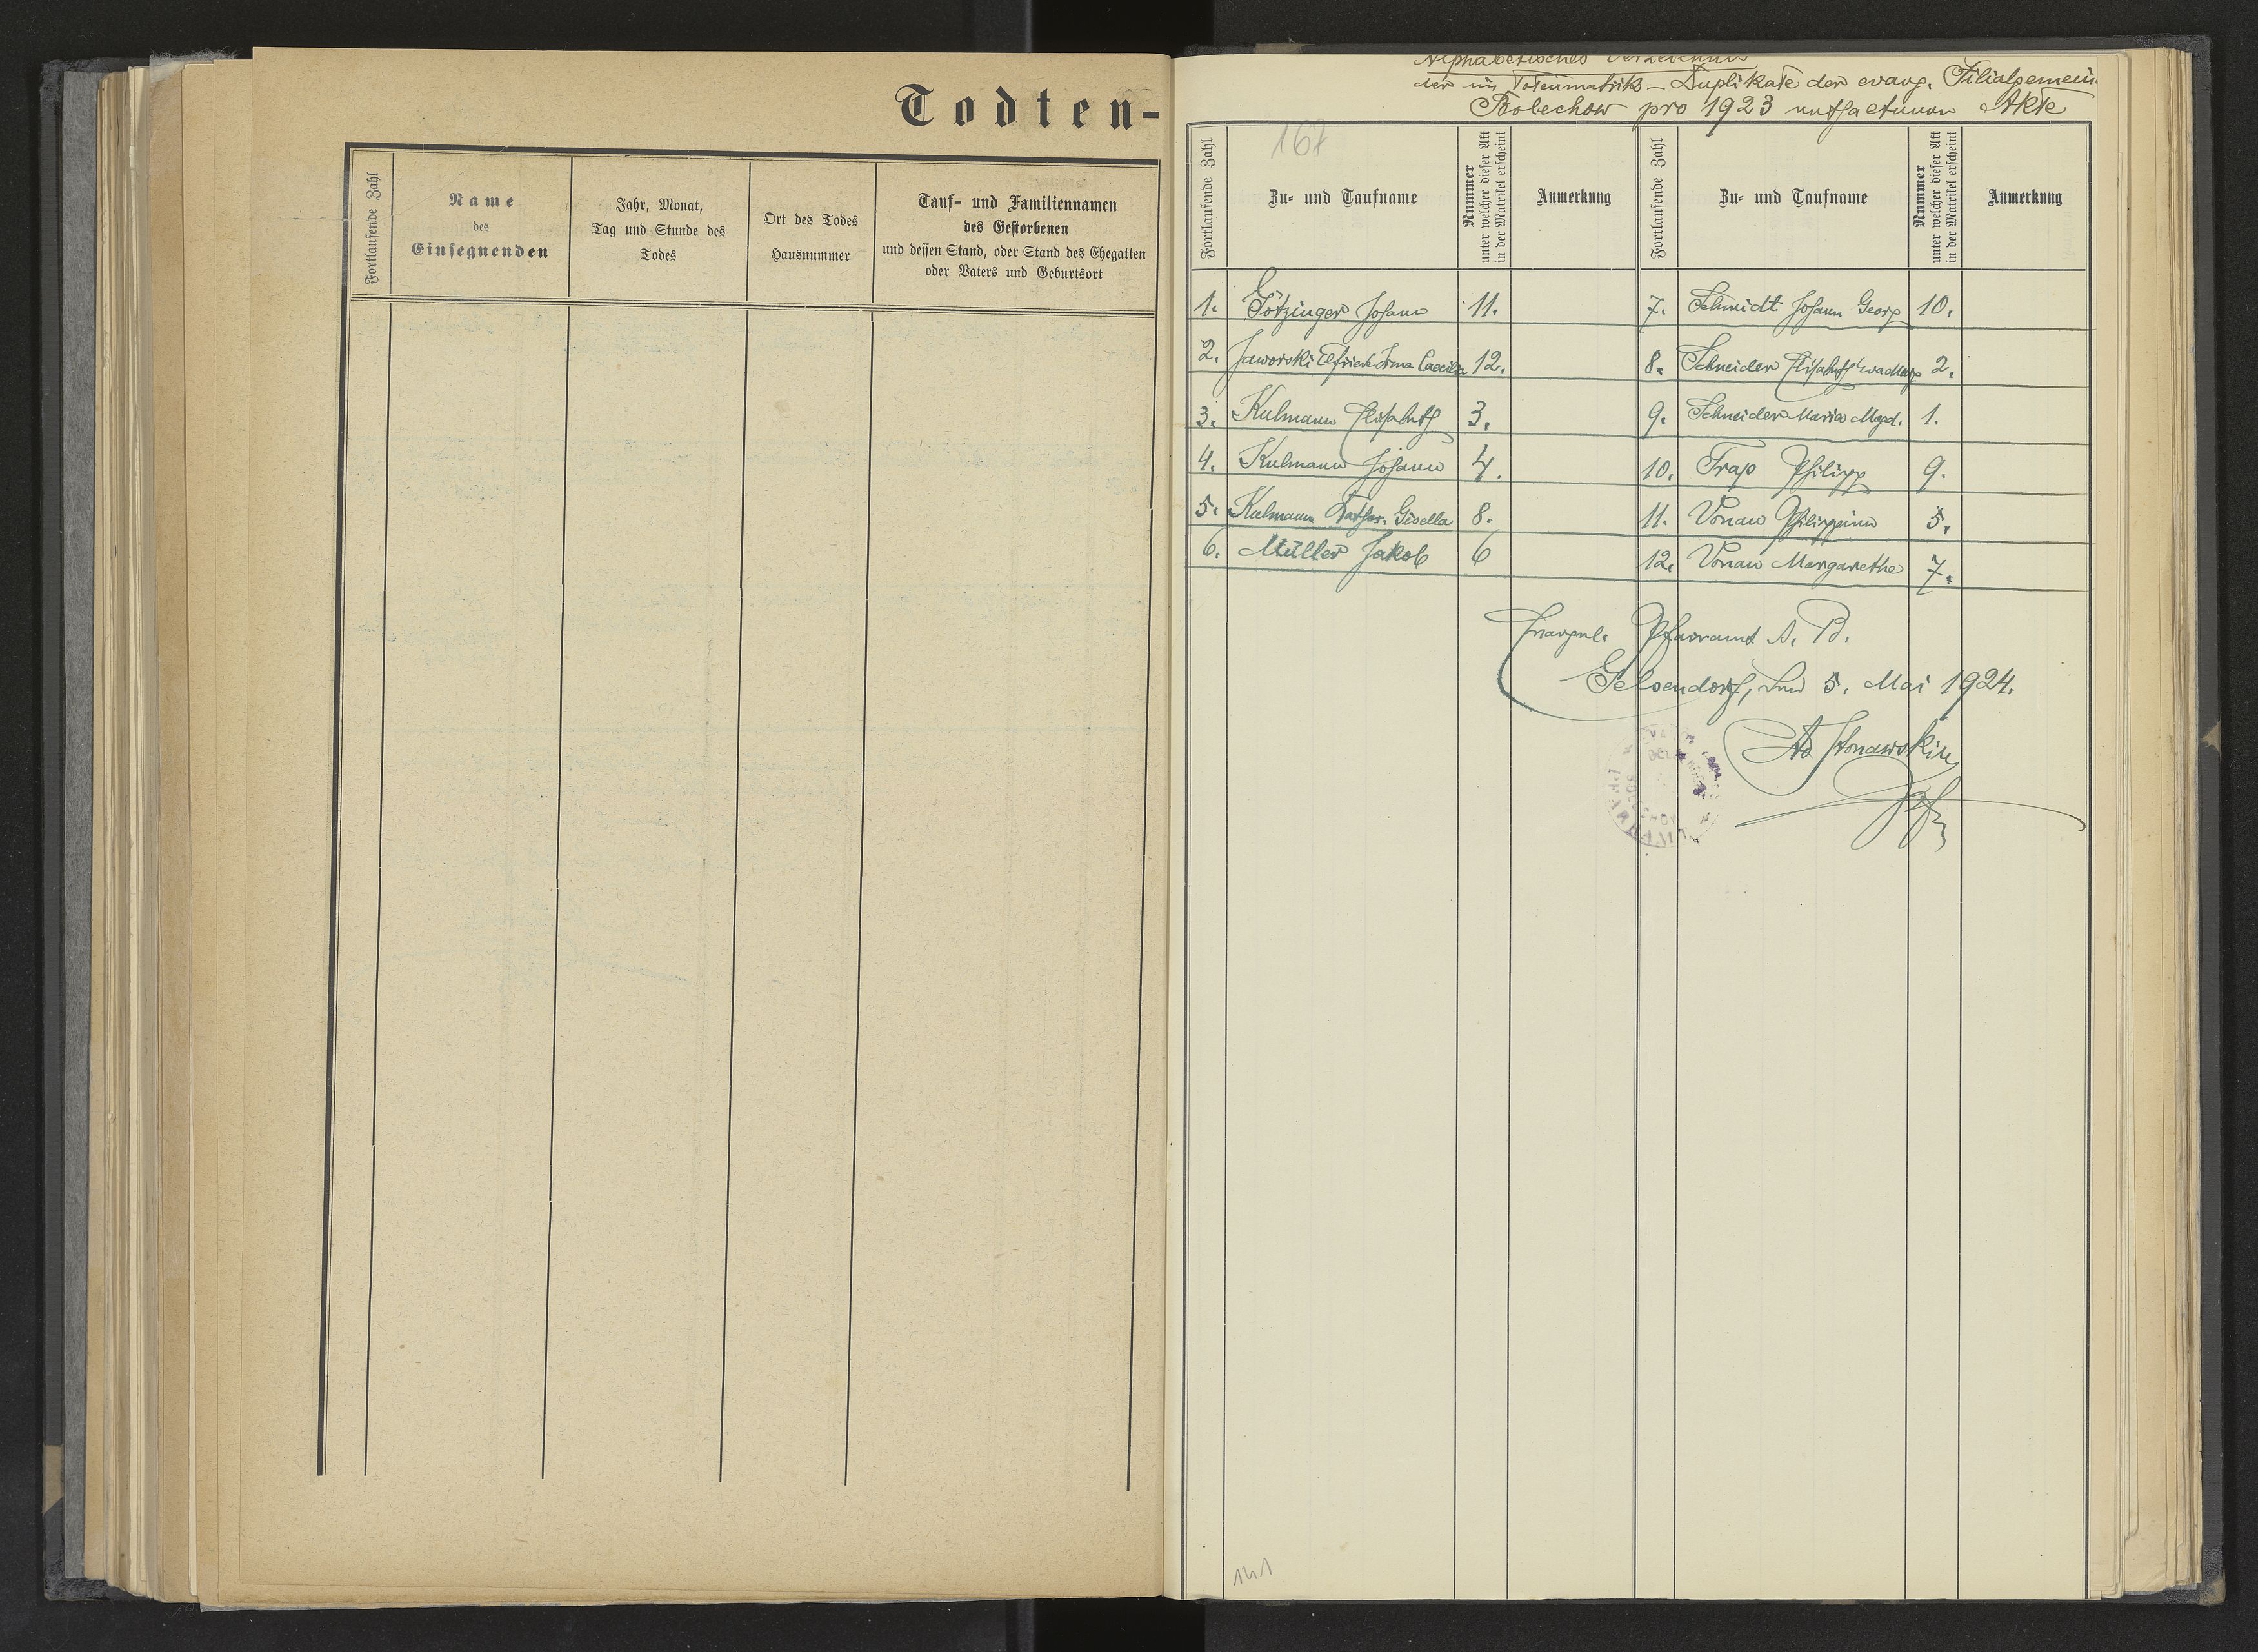 Todten-
Fortlaufende Zahl
Name
des
Einsegnenden
Jahr, Monat,
Tag und Stunde des
Todes
Ort des Todes
Hausnummer
Tauf- und Familiennamen
des Gestorbenen
und dessen Stand, oder Stand des Ehegatten
oder Vaters und Geburtsort
Alphabetisches Verzeichnis
der im Totenmatrik-Duplikate der evang. Filialgemein
Bolechow pro 1923 enthaltenen Akte
167
Fortlaufende Zahl
Zu- und Taufname
Nummer
unter welcher dieser Akt
in der Matrikel erscheint
Anmerkung
Fortlaufende Zahl
Zu- und Taufname
Nummer
unter welcher dieser Akt
in der Matrikel erscheint
Anmerkung
1. Götzinger Johann 11.
2. Jaworski Elfriede Irma Caecilia 12.
3. Kulmann Elisabeth 3.
4. Kulmann Johann 4.
5. Kulmann Kathar. Gisella 8.
6. Müller Jakob 6
7. Schmidt Johann Georg 10.
8. Schneider Elisabeth 2.
9. Schneider Maria Magd. 1.
10. Trap Philipp 9.
11. Vonau Philippine 5.
12. Vonau Margarethe 7.
Evangel. Pfarramt A. B.
Gelsendorf, den 5. Mai 1924.
141